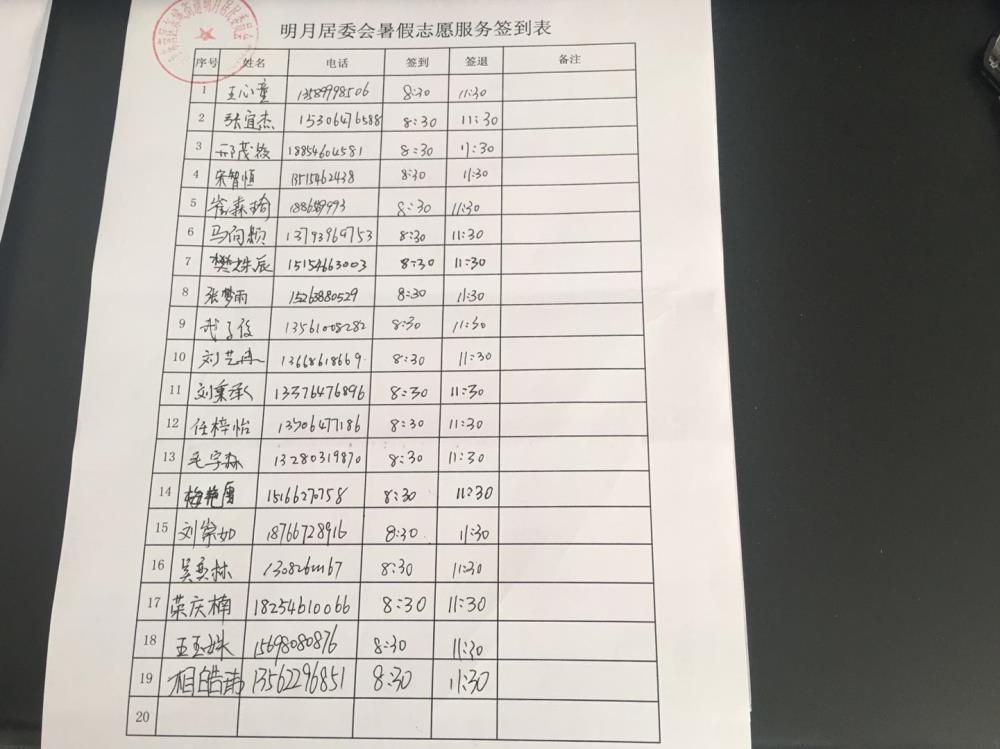 明月居委会暑假志愿服务签到表
序号 姓名 电话 签到 签退 备注
1 王心童 13589998506 8:30 11:30
2 张宜杰 15306476588 8:30 11:30
3 邢茂 18854604581 8:30 11:30
4 宋智恒 13515462438 8:30 11:30
5 崔森 8:30 11:30
6 马向颖 13793969753 8:30 11:30
7 樊 辰 15154663003 8:30 11:30
8 张梦雨 15263880529 8:30 11:30
9 13561008282 8:30 11:30
10 刘艺冉 13668618669 8:30 11:30
11 刘秉承 13376476896 8:30 11:30
12 任梓怡 13706477186 8:30 11:30
13 毛宇 13280319870 8:30 11:30
14 梅艳 15166270758 8:30 11:30
15 刘 如 18766728916 8:30 11:30
16 吴奕林 8:30 11:30
17 荣庆楠 18254610066 8:30 11:30
18 王玉姝 15698080876 8:30 11:30
19 相皓 13562296851 8:30 11:30
20